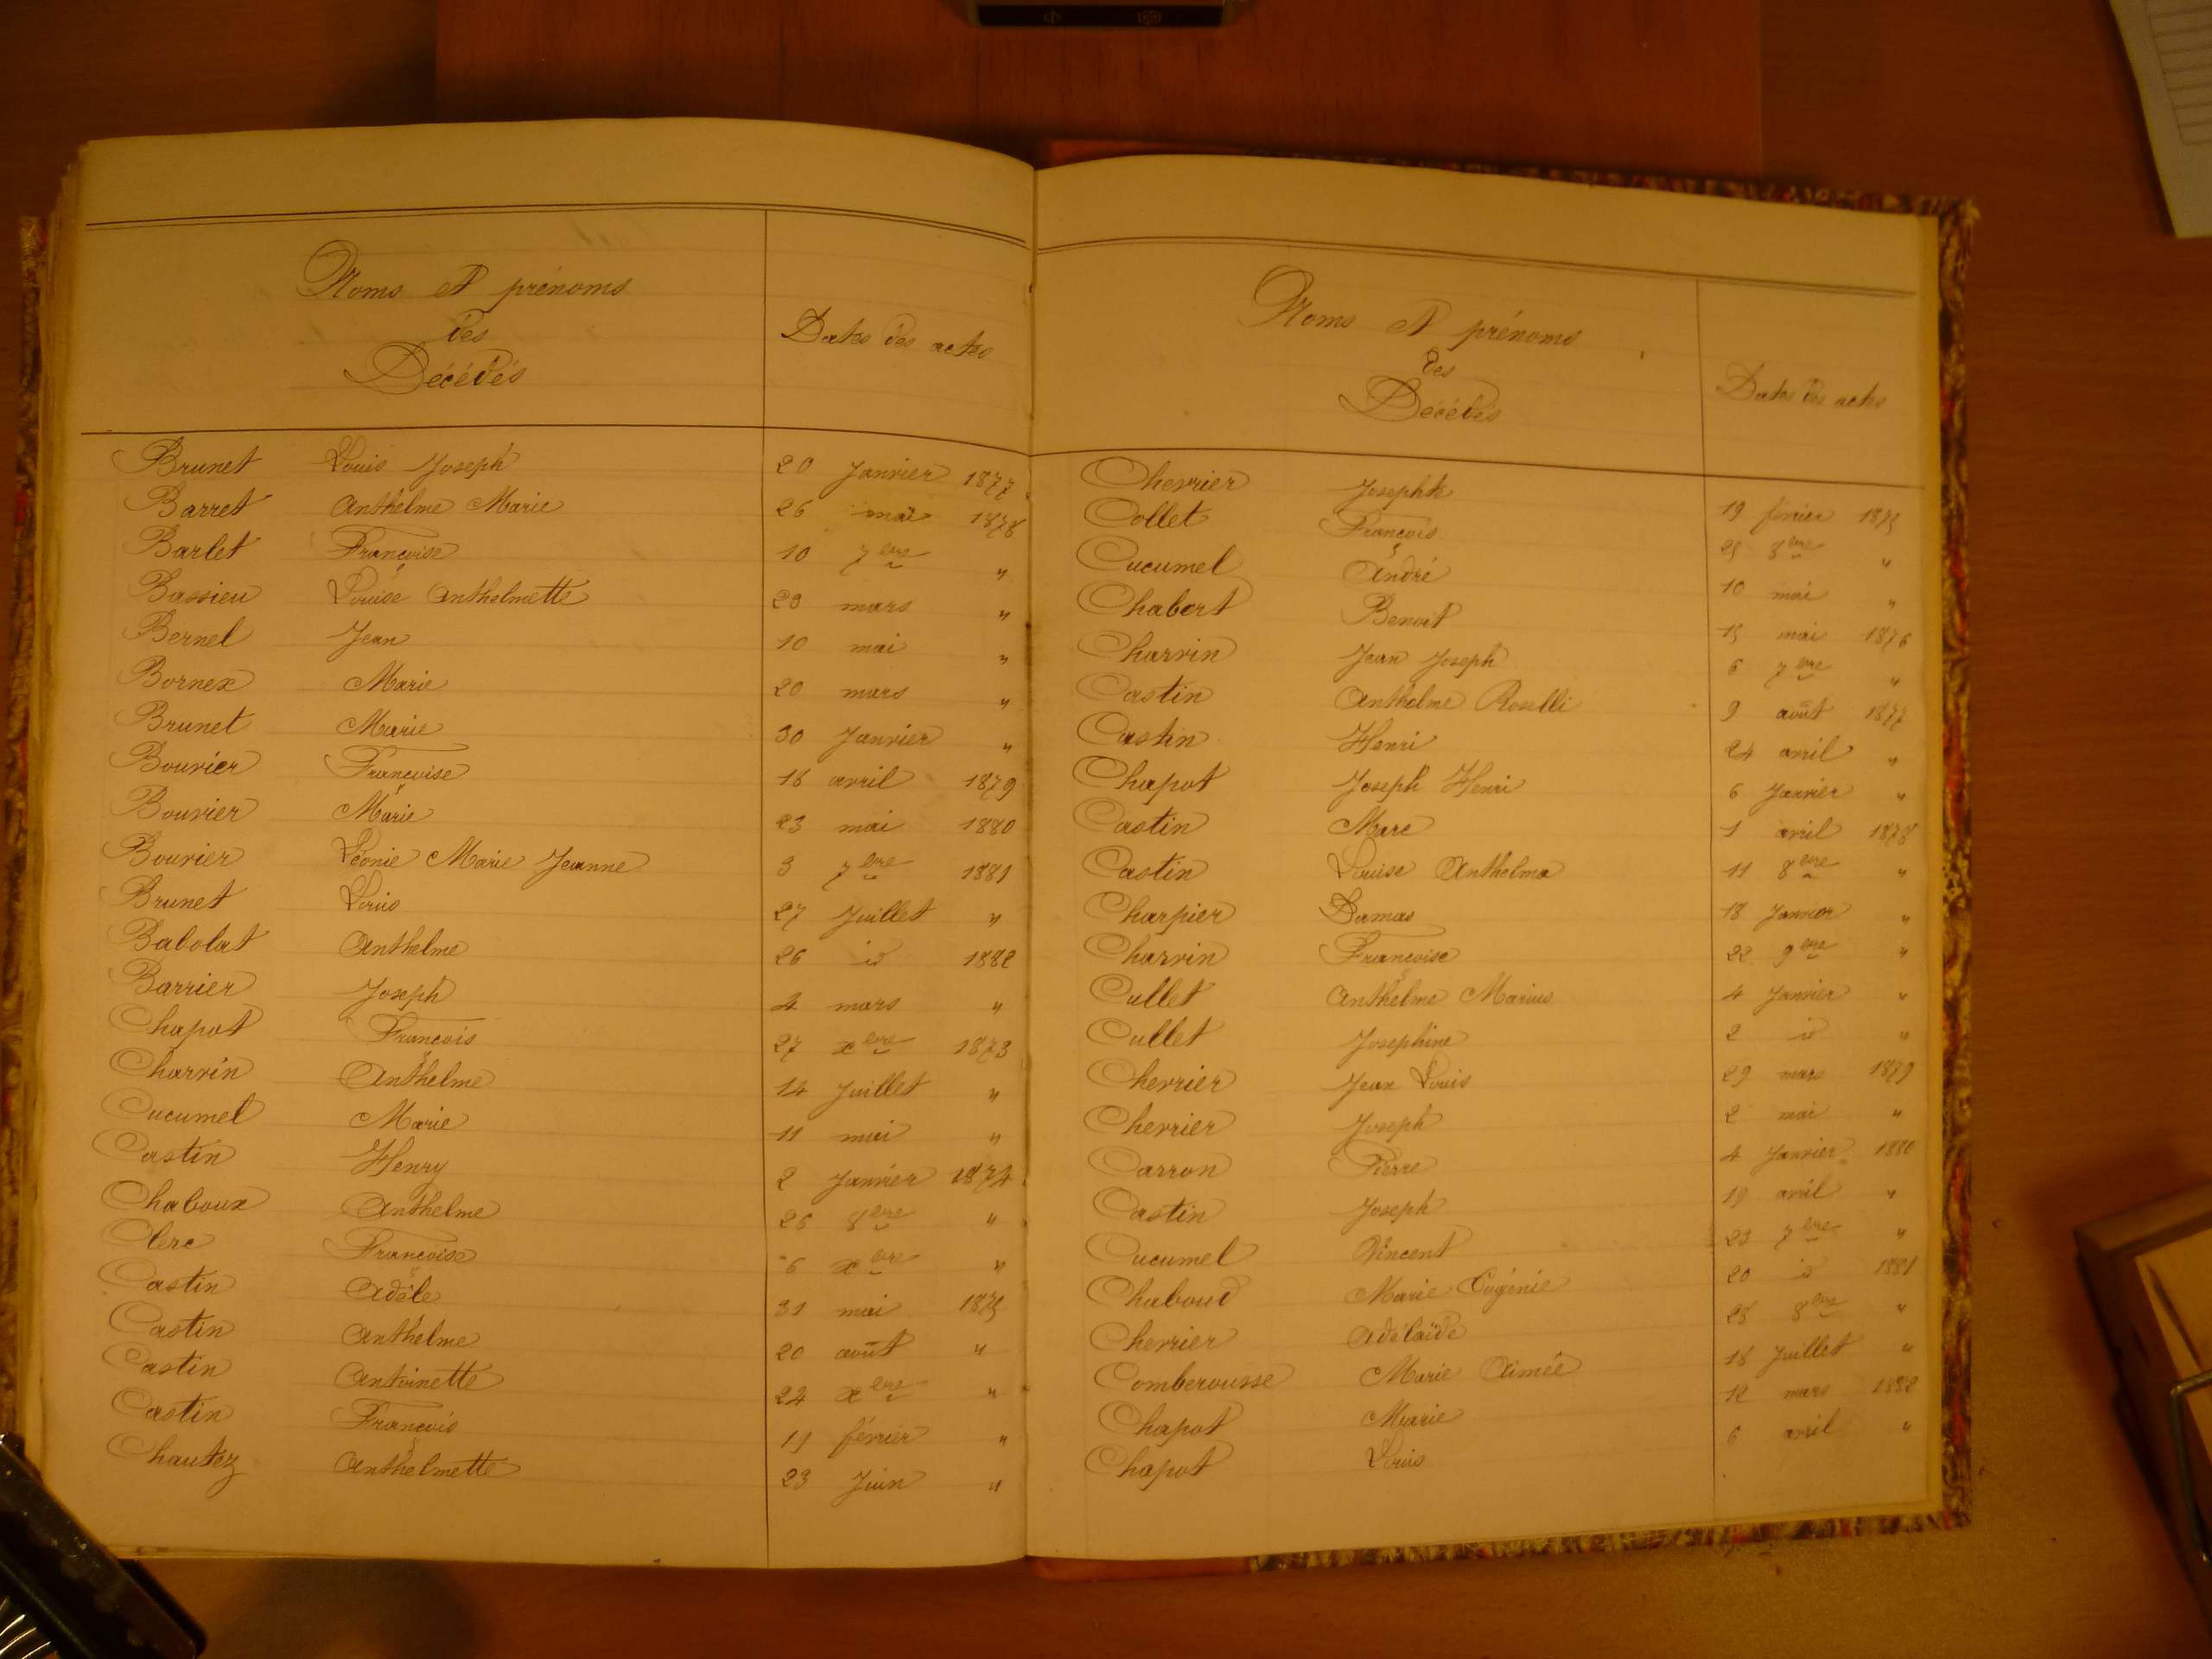 Noms et prénoms
des
Décédés
Dates des actes
Brunet Louis Joseph 20 Janvier 1877
Barret Anthelme Marie 26 mai 1878
Barlet Françoise 10 7bre "
Bassieu Louise Anthelmette 29 mars "
Bernel Jean 10 mai "
Bornex Marie 20 mars "
Brunet Marie 30 Janvier "
Bouvier Françoise 18 avril 1879
Bouvier Marie 23 mai 1880
Bouvier Léonie Marie Jeanne 3 7bre 1881
Brunet Louis 27 Juillet "
Babolat Anthelme 26 id 1882
Barrier Joseph 4 mars "
Chapot François 27 xbre 1873
Charvin Anthelme 14 Juillet "
Cucumel Marie 11 mai "
Castin Henry 2 Janvier 1874
Chaboux Anthelme 26 8bre "
Clerc Françoise 6 xbre "
Castin Adèle 31 mai 1875
Castin Anthelme 20 août "
Castin Antoinette 24 xbre "
Castin François 19 février "
Chautez Anthelmette 23 Juin "
Noms et prénoms
des
Décédés
Dates des actes
Chevrier Josephte 19 février 1875
Collet François 25 8bre "
Cucumel André 10 mai "
Chabert Benoit 15 mai 1876
Charvin Jean Joseph 6 7bre "
Castin Anthelme Roselli 9 août 1877
Castin Henri 24 avril "
Chapot Joseph Henri 6 Janvier "
Castin Marc 1 avril 1878
Castin Louise Anthelma 11 8bre "
Charpier Damas 18 Janvier "
Charvin Françoise 22 9bre "
Cullet Anthelme Marius 4 Janvier "
Cullet Josephine 2 id "
Chevrier Jean Louis 29 mars 1879
Chevrier Joseph 2 mai "
Carron Pierre 4 Janvier 1880
Castin Joseph 19 avril "
Cucumel Vincent 23 7bre "
Chaboud Marie Eugénie 20 id 1881
Chevrier Adélaïde 28 8bre "
Comberousse Marie Aimée 18 Juillet "
Chapot Marie 12 mars 1882
Chapot Louis 6 avril "